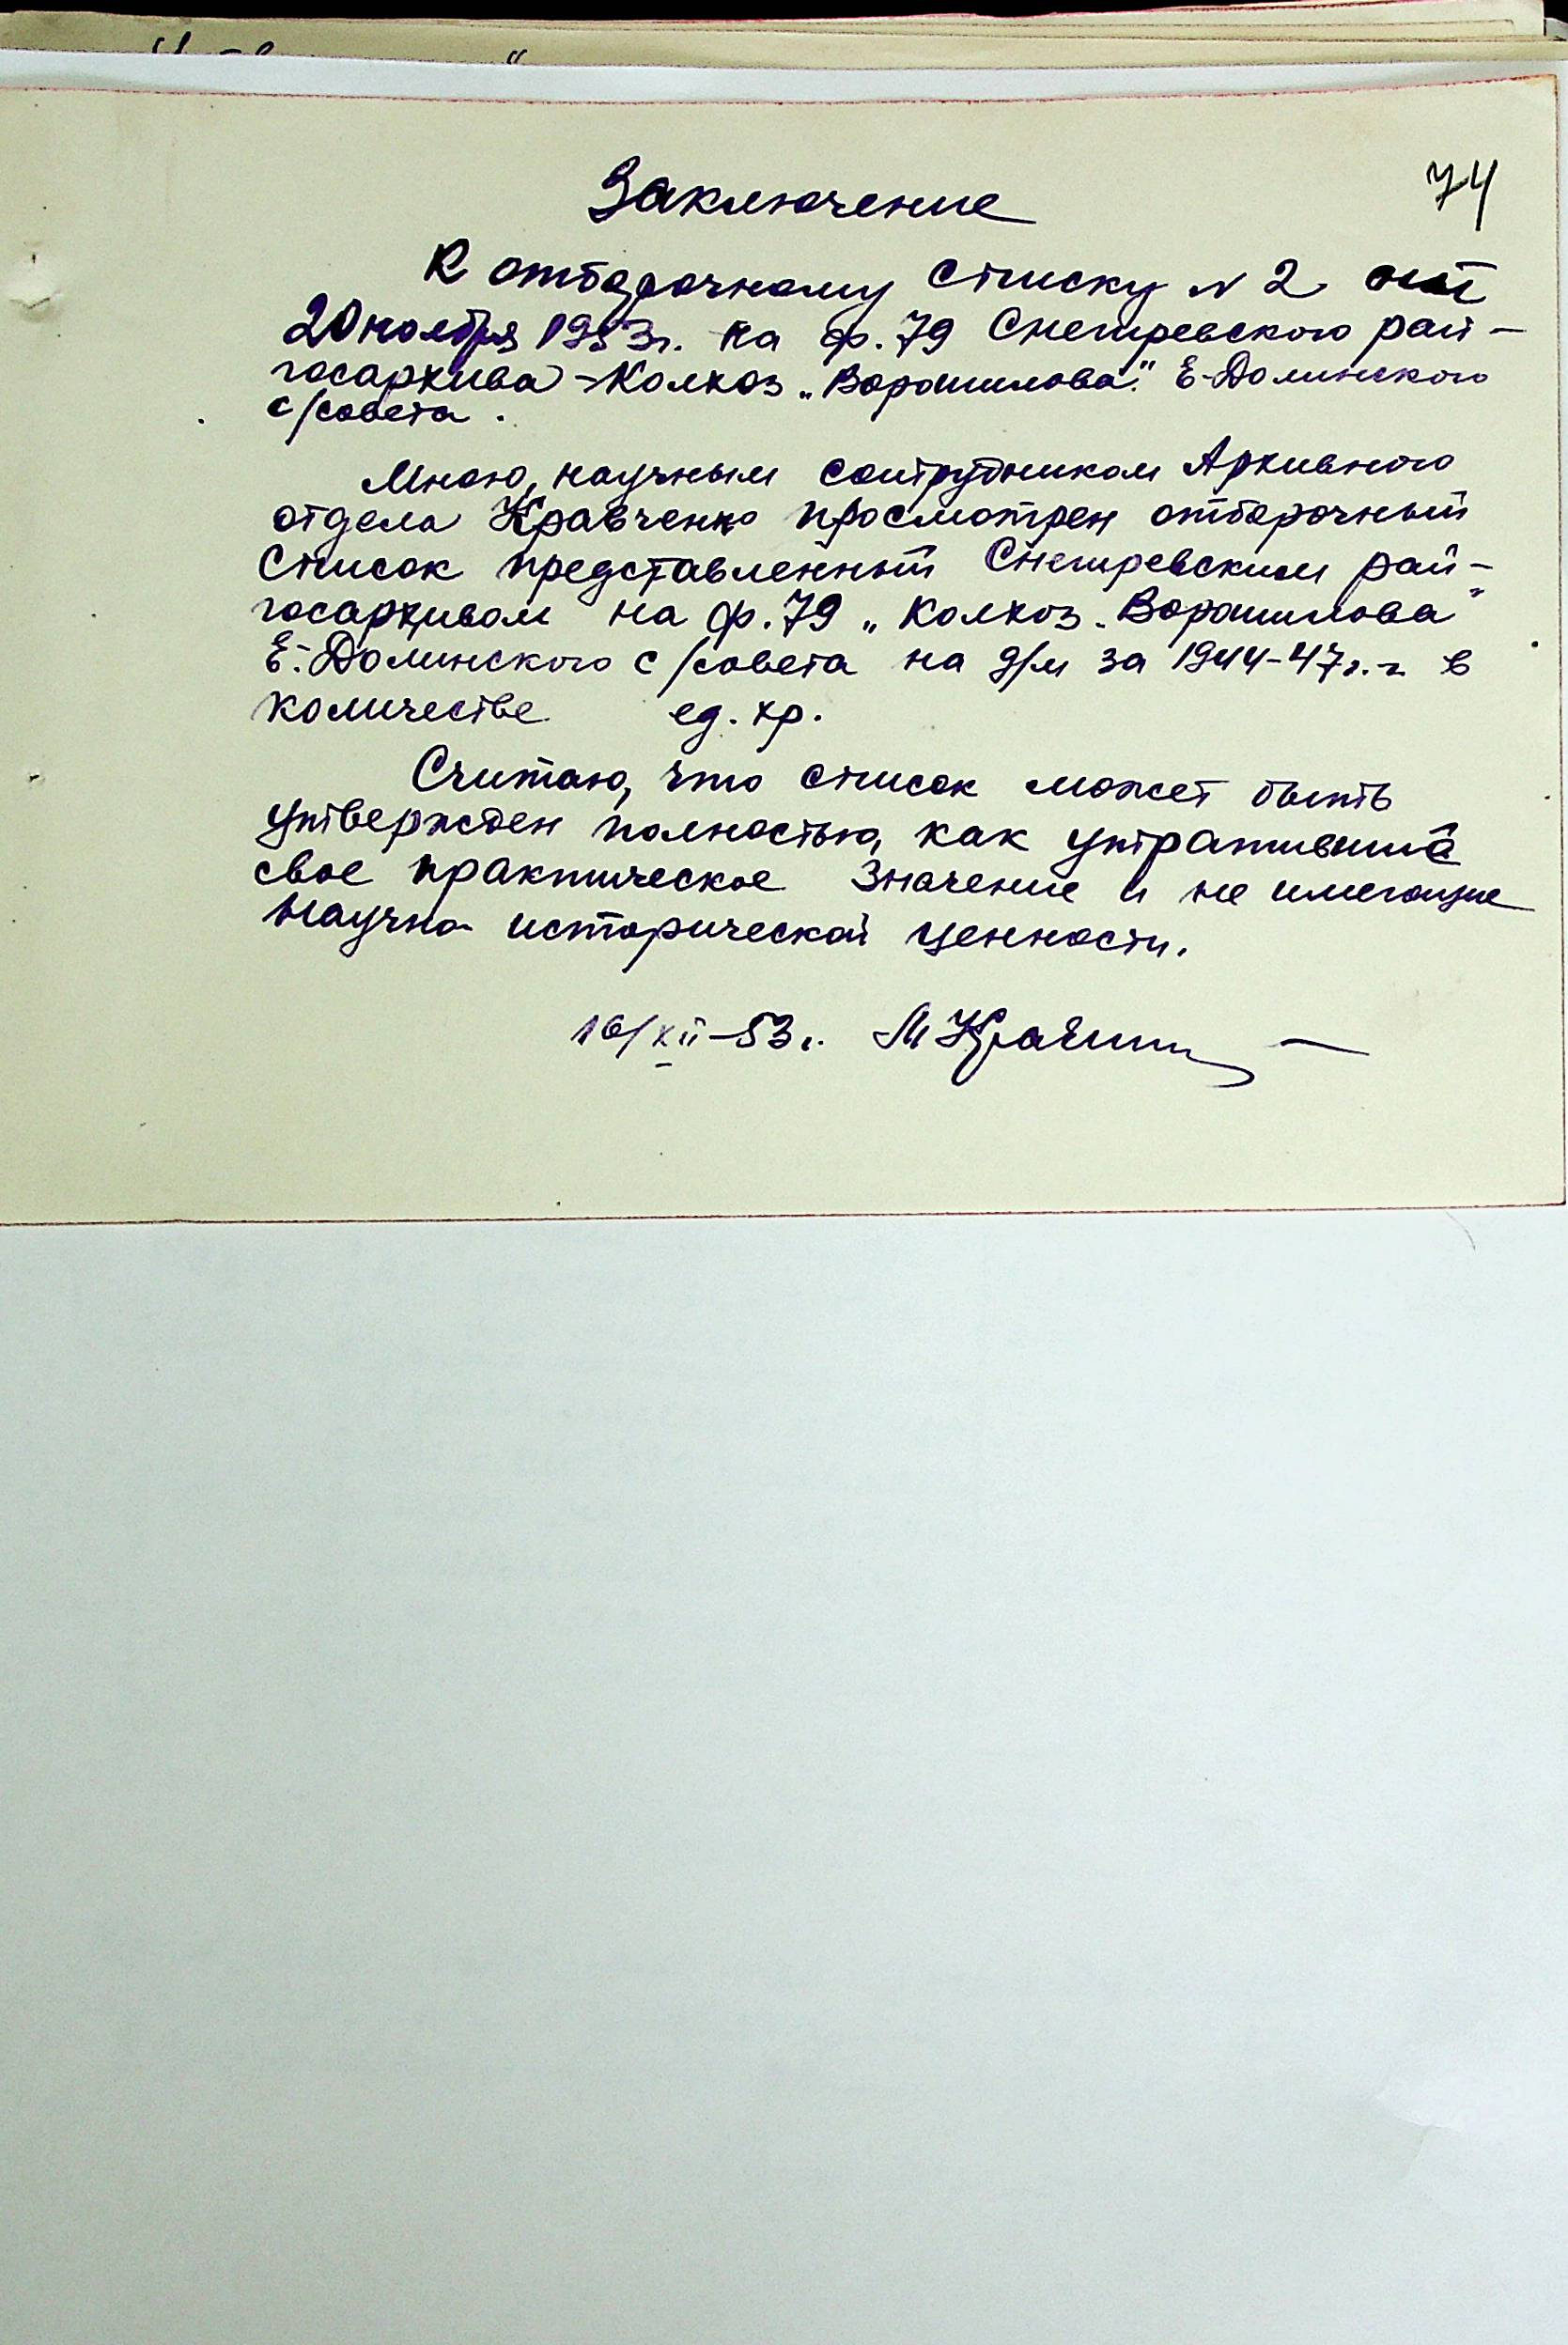 74
Заключение
К отборочному списку N 2 от
20 ноября 1953г. на ф. 79 Снегиревского рай-
госархива - Колхоз „Ворошилова." Е-Долинского
с/совета.
Мною, научным сотрудником Архивного
отдела Кравченко просмотрен отборочный
список представленный Снегиревским рай-
госархивом на ф. 79 „Колхоз Ворошилова"
Е.-Долинского с/совета на д/м за 1944-47г.г. в
количестве ед. хр.
Считаю, что список может быть
утвержден полностью, как утративший
свое практическое значение и не имеющие
научно исторической ценности.
16/XII-53г.